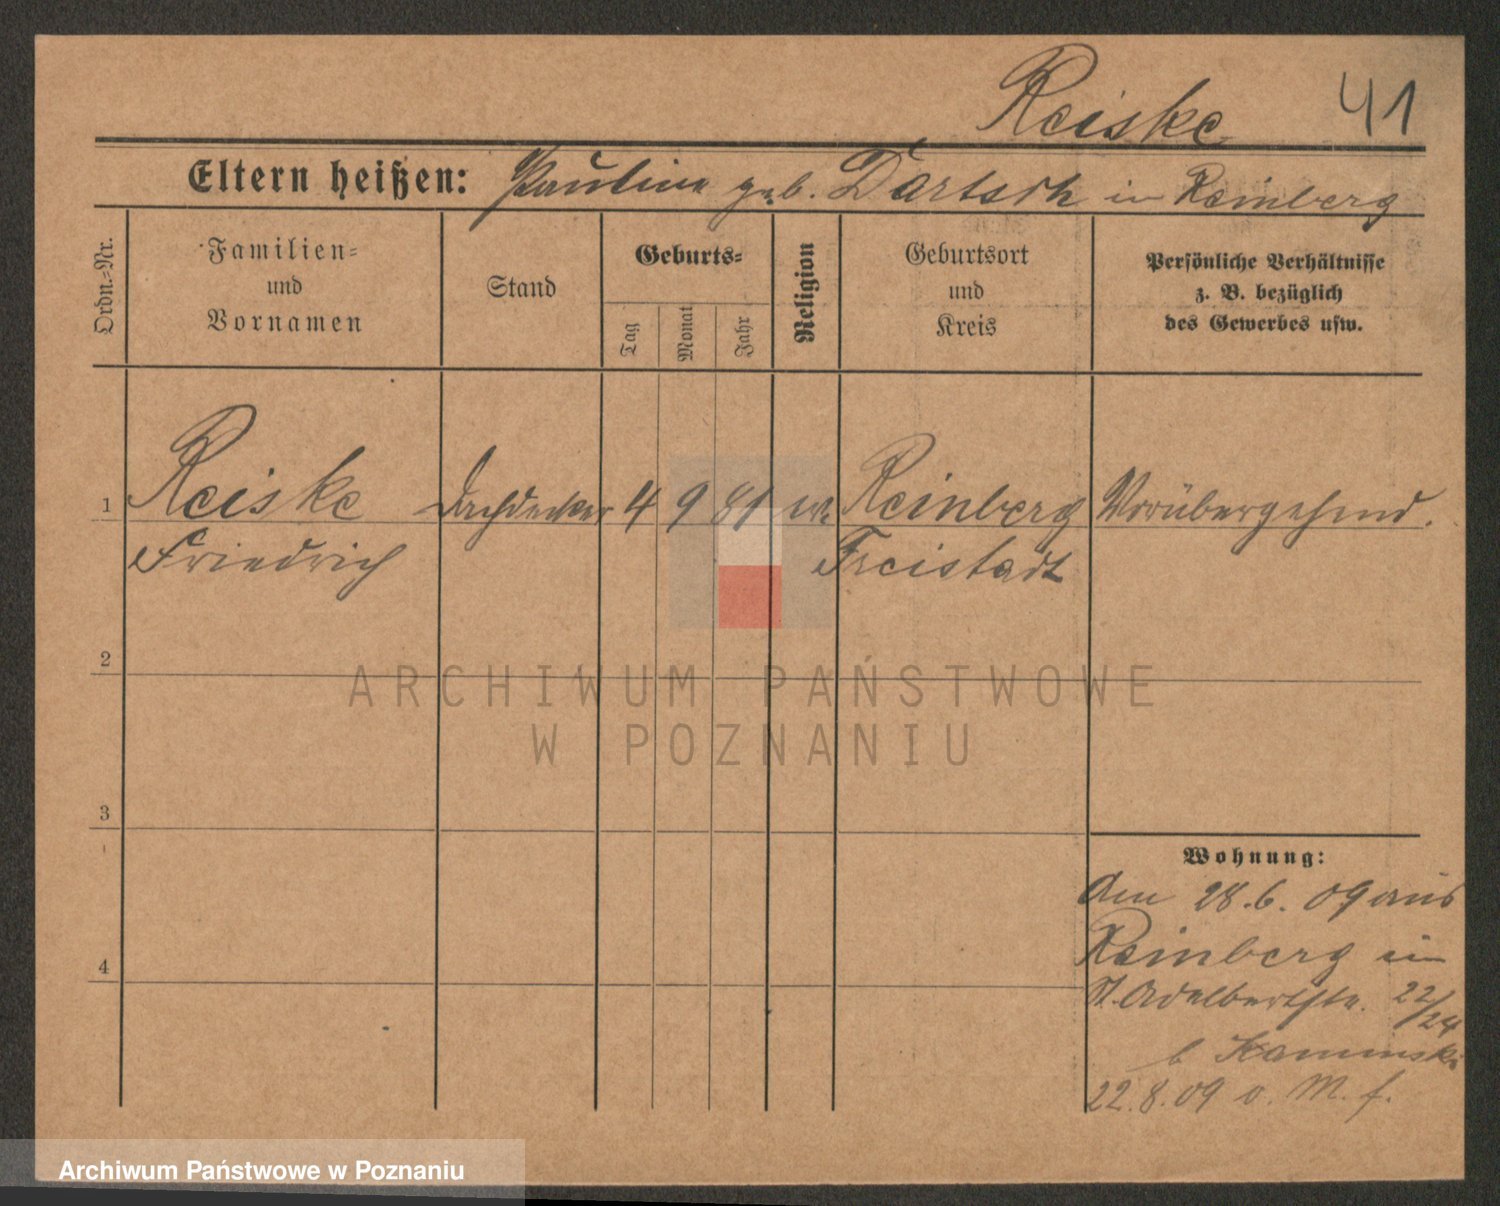 Reiske 41
Eltern heißen: Pauline geb. Dartsch in Reinberg
Ordn.-Nr.
Familien-
und
Vornamen
Stand
Geburts-
Tag
Monat
Jahr
Religion
Geburtsort
und
Kreis
Persönliche Verhältnisse
z. B. bezüglich
des Gewerbes usw.
1 Reiske Dachdecker 4 9 81 ev. Reinberg Vorübergehend.
Friedrich Freistadt
2
ARCHIWUM PAŃSTWOWE
W POZNANIU
3
Wohnung:
Am 28.6.09 aus
Reinberg in
St. Adelbertstr. 22/24
b Kaminski
22.8.09 v. M. f.
4
Archiwum Państwowe w Poznaniu